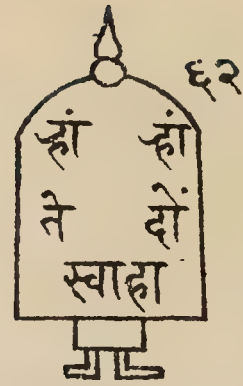 ६२
ह्रां ह्रां
ते दों
स्वाहा